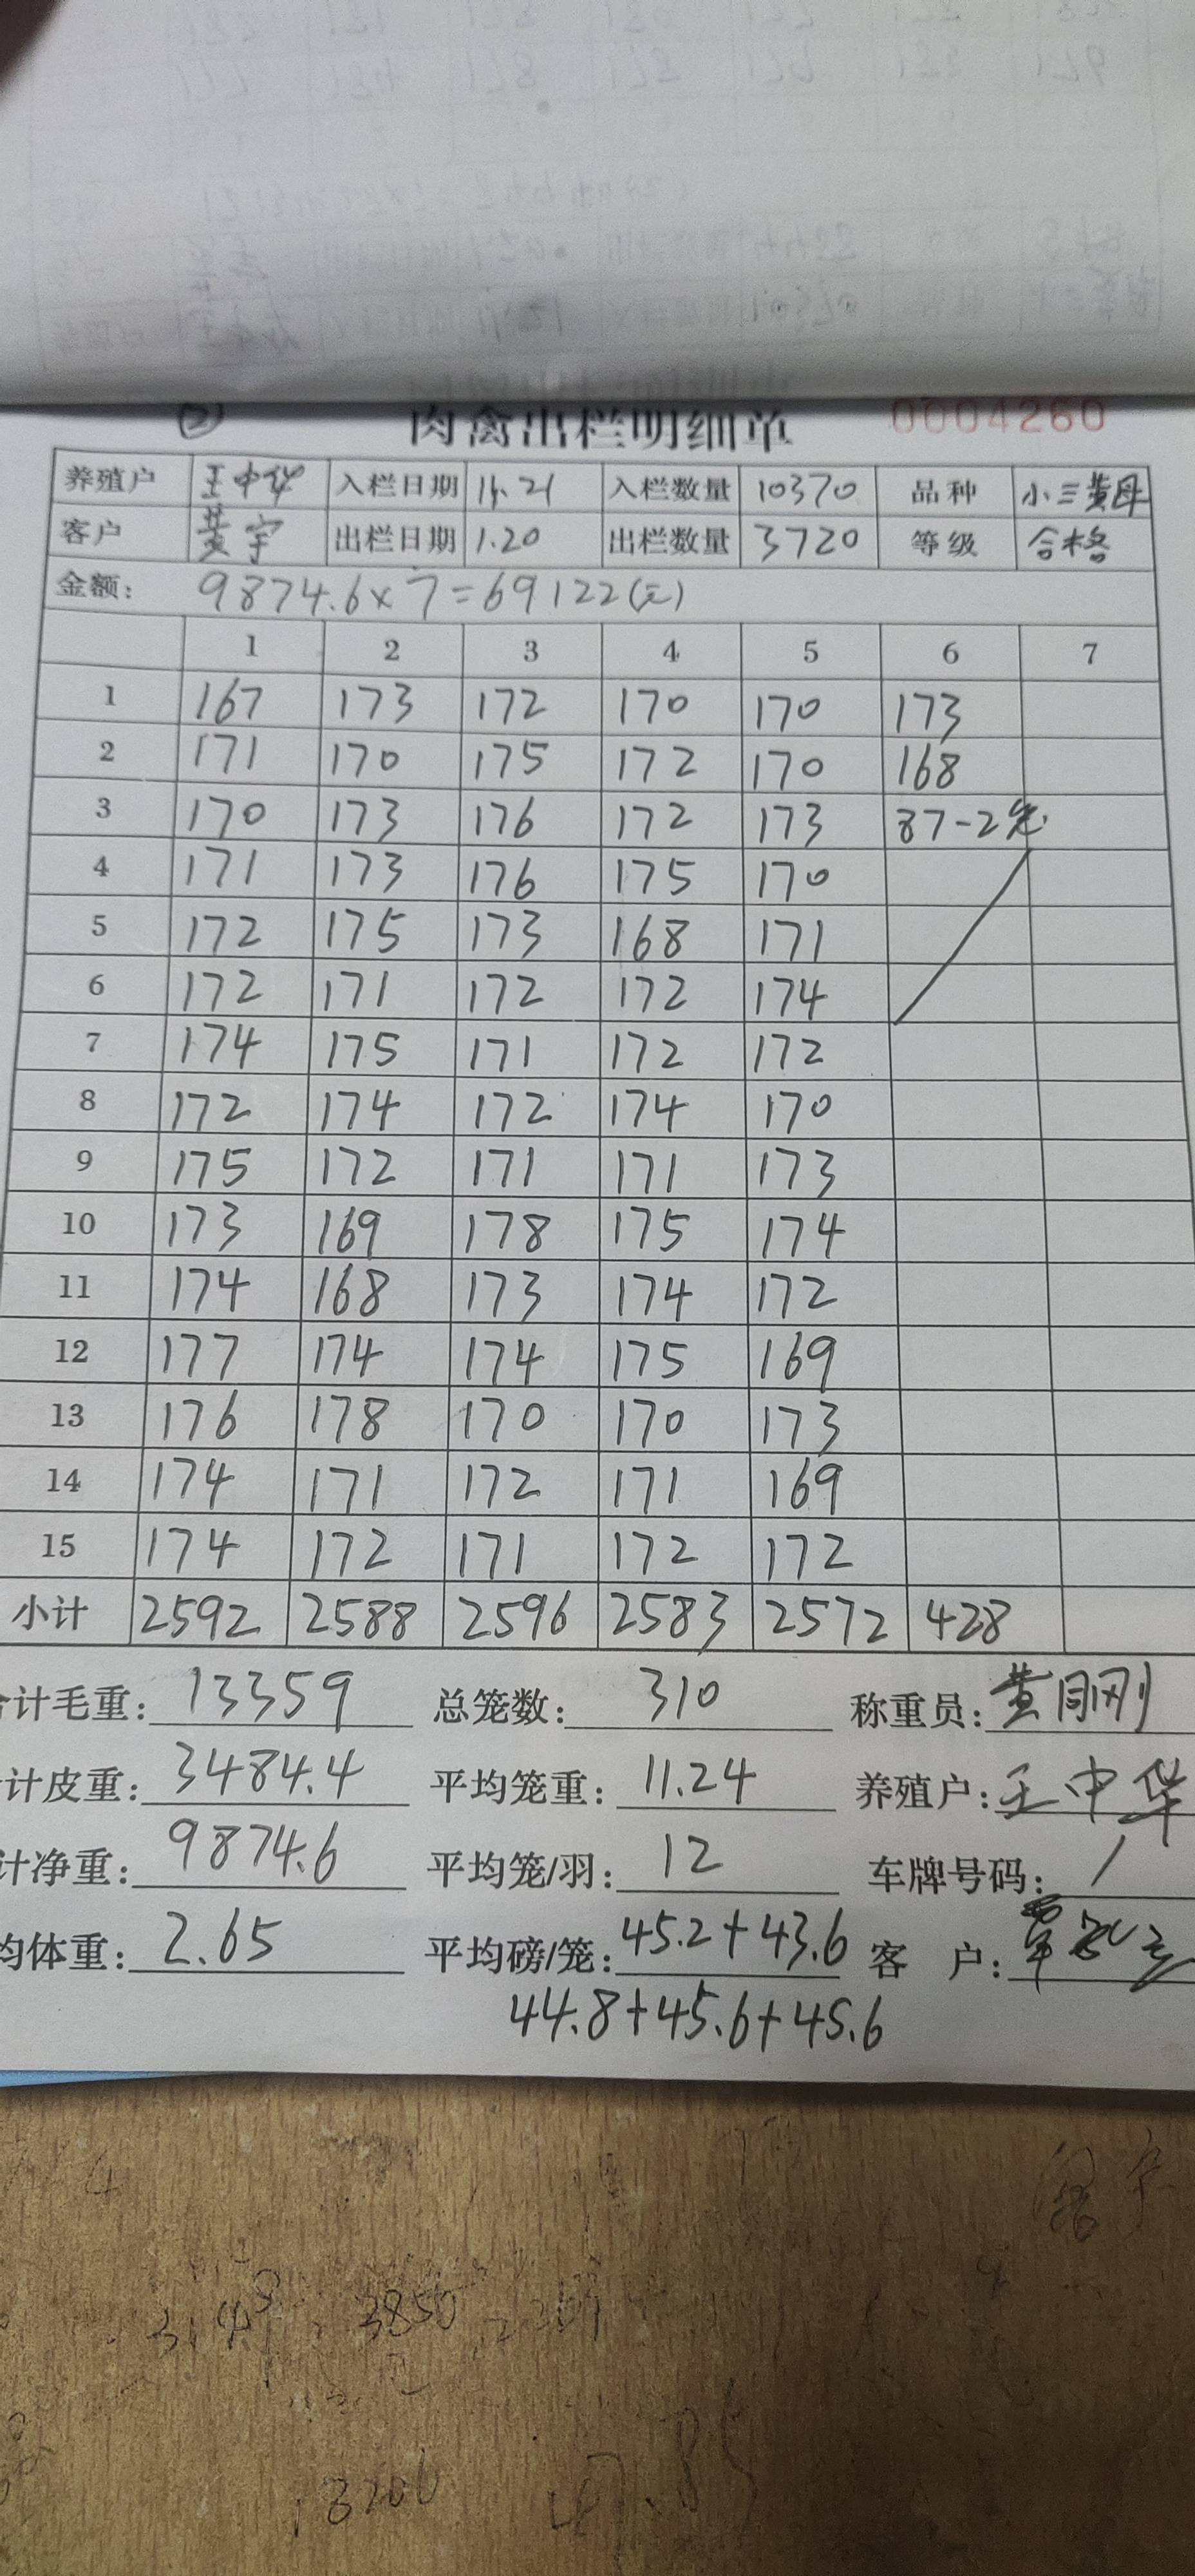 ②
肉禽出栏明细单 0004260
养殖户 王中华 入栏日期 11.21 入栏数量 10370 品种 小三黄母
客户 黄宇 出栏日期 1.20 出栏数量 3720 等级 合格
金额: 9874.6×7=69122(元)
1 2 3 4 5 6 7
1 167 173 172 170 170 173
2 171 170 175 172 170 168
3 170 173 176 172 173 87-2笼
4 171 173 176 175 170
5 172 175 173 168 171
6 172 171 172 172 174
7 174 175 171 172 172
8 172 174 172 174 170
9 175 172 171 171 173
10 173 169 178 175 174
11 174 168 173 174 172
12 177 174 174 175 169
13 176 178 170 170 173
14 174 171 172 171 169
15 174 172 171 172 172
小计 2592 2588 2596 2583 2572 428
计毛重: 13359 总笼数: 310 称重员:
计皮重: 3484.4 平均笼重: 11.24 养殖户: 王中华
计净重: 9874.6 平均笼/羽: 12 车牌号码: /
均体重: 2.65 平均磅/笼: 45.2+43.6 客户:
44.8+45.6+45.6
3850